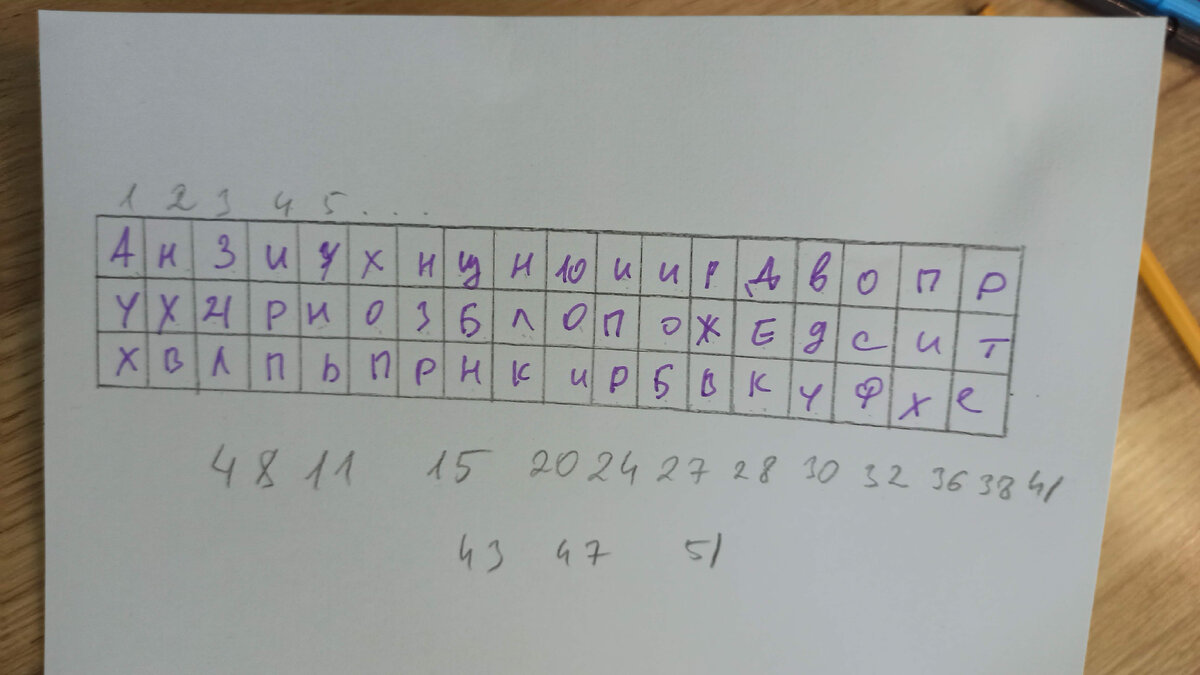 1 2 3 4 5 . . .
А Н З И У Х Н Щ Н Ю И И Г Д В О П Р
У Х Ч Р Н О З Б Л О П О Ж Е Д С И Т
Х В Л П Ь П Р Н К И Р Б В К У Ф Х С
4 8 11 15 20 24 27 28 30 32 36 38 41
43 47 51